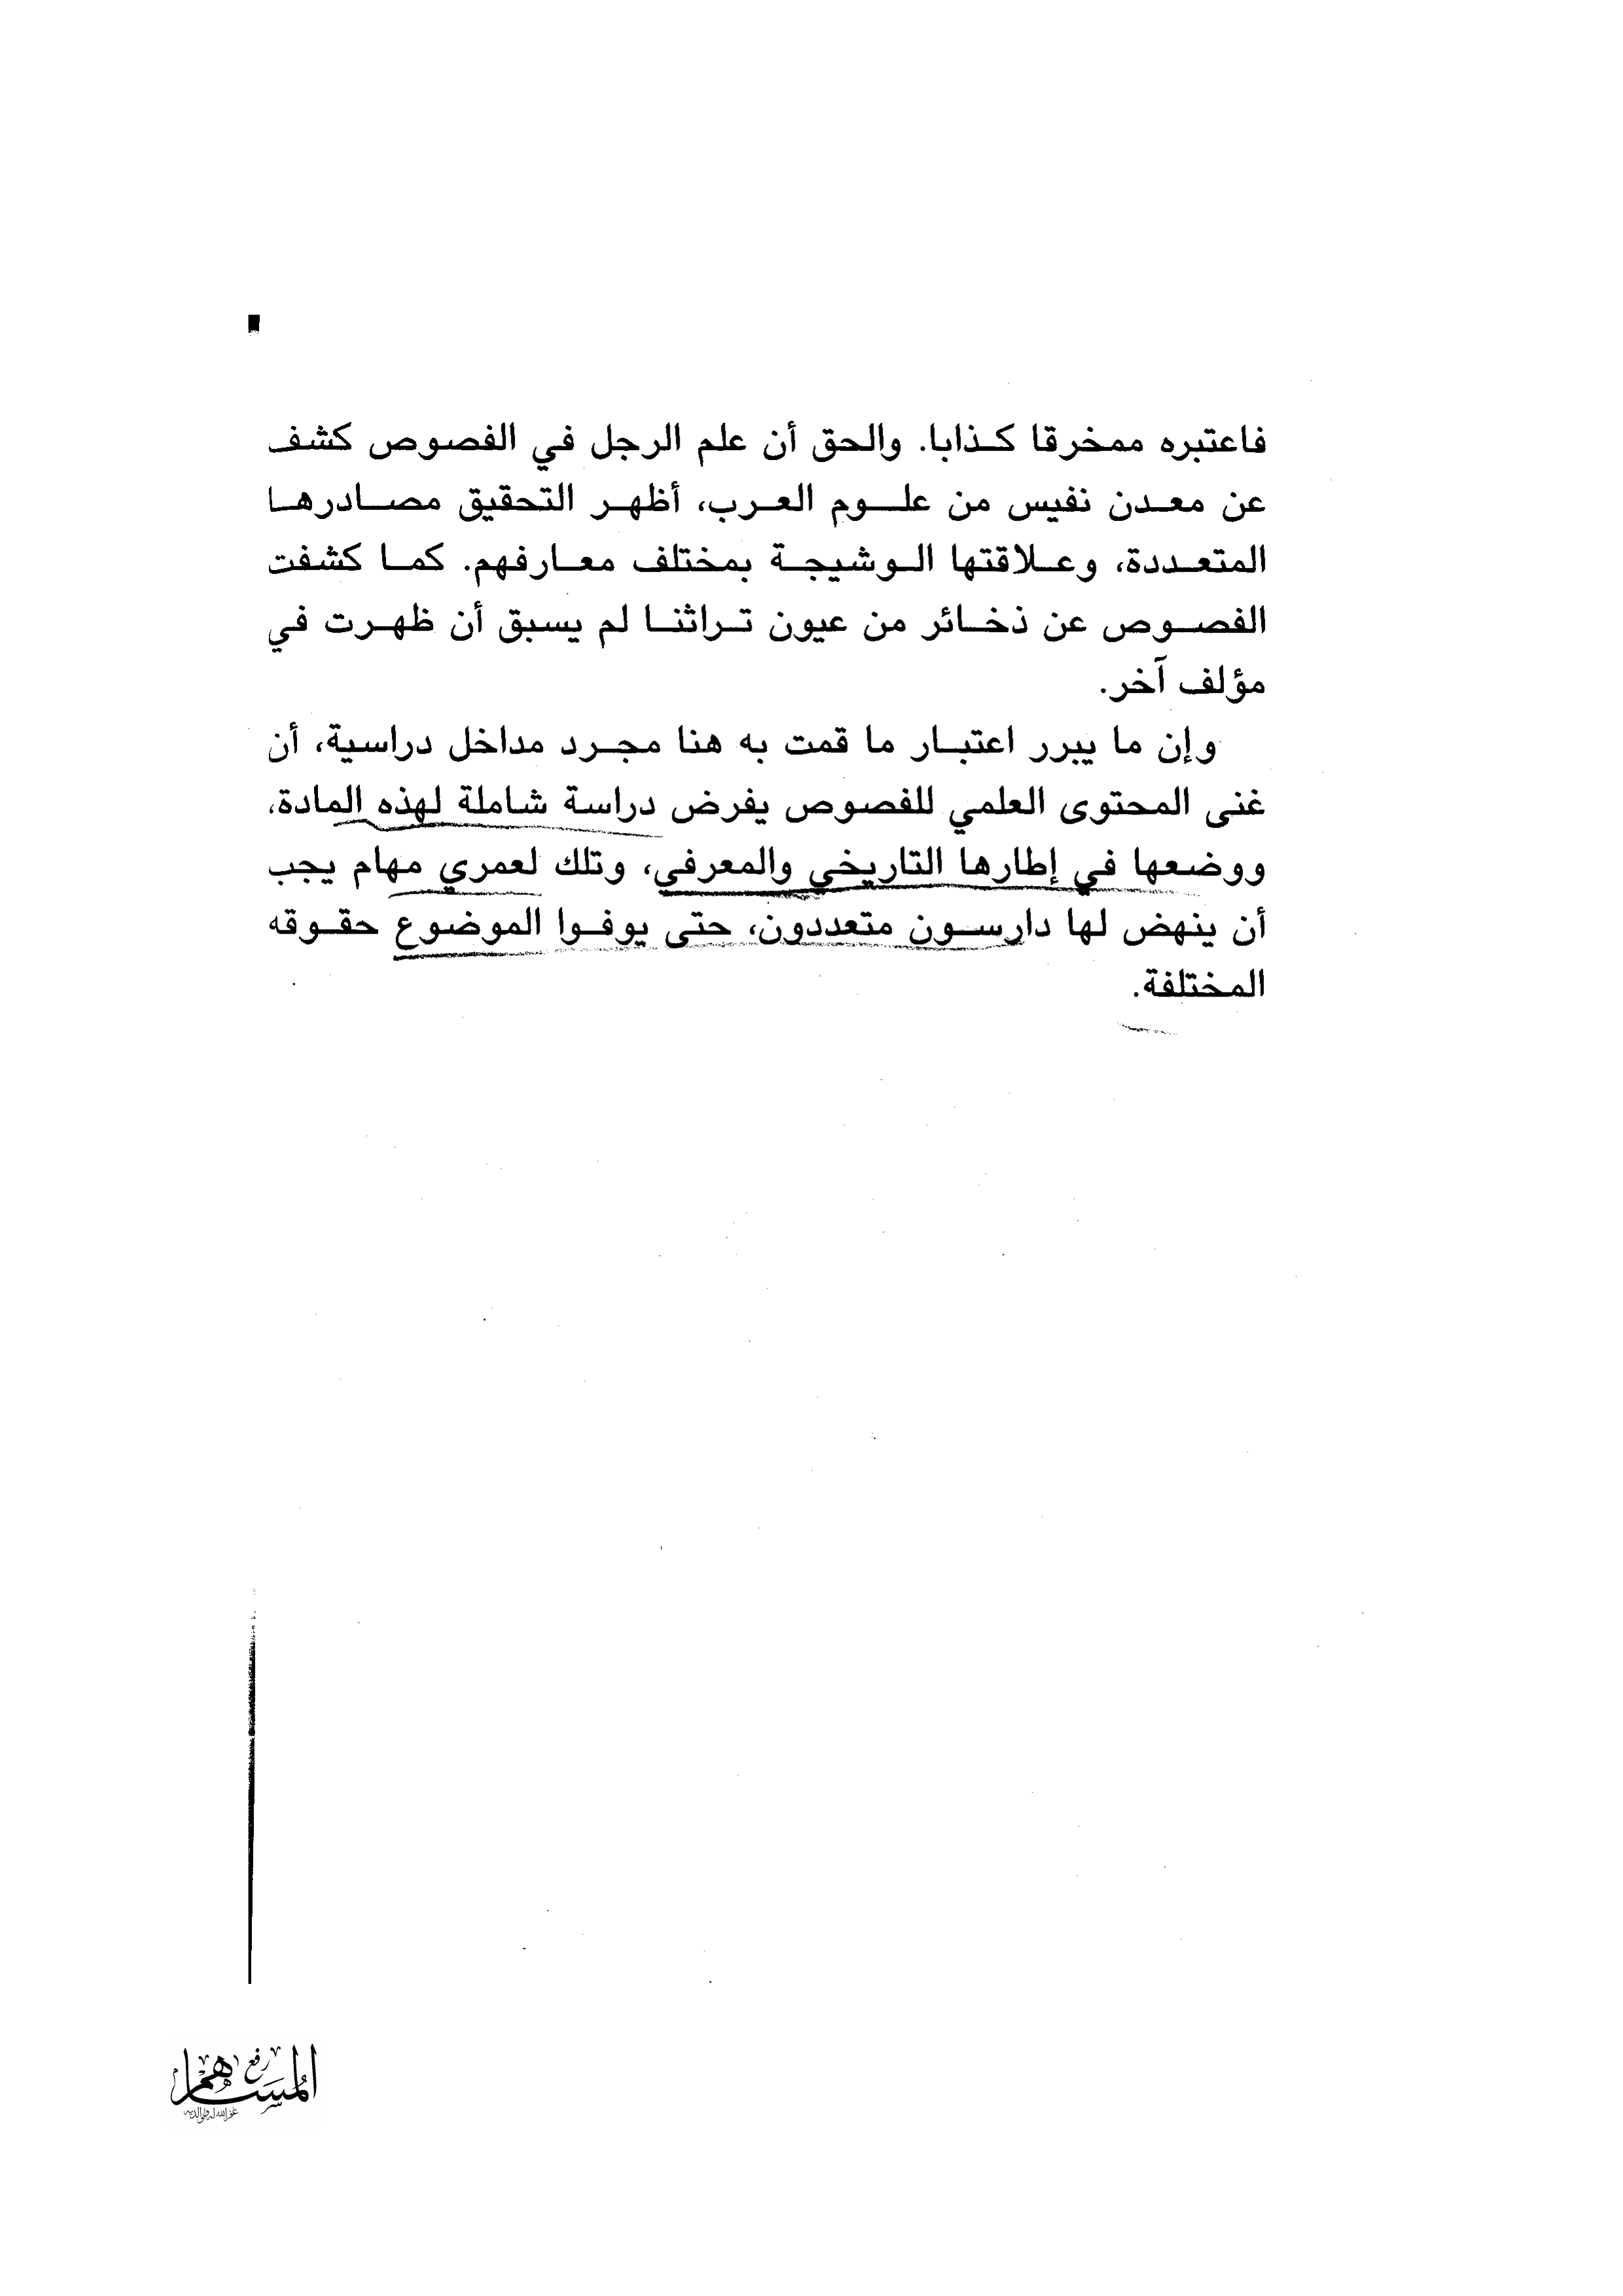 فاعتبره ممخرقا كذابا. والحق أن علم الرجل في الفصوص كشف
عن معدن نفيس من علوم العرب، أظهر التحقيق مصادرها
المتعددة، وعلاقتها الوشيجة بمختلف معارفهم. كما كشفت
الفصوص عن ذخائر من عيون تراثنا لم يسبق أن ظهرت في
مؤلف آخر.
وإن ما يبرر اعتبار ما قمت به هنا مجرد مداخل دراسية، أن
غنى المحتوى العلمي للفصوص يفرض دراسة شاملة لهذه المادة،
ووضعها في إطارها التاريخي والمعرفي، وتلك لعمري مهام يجب
أن ينهض لها دارسون متعددون، حتى يوفوا الموضوع حقوقه
المختلفة.
رفع
المساهم
غفر الله له ولوالديه